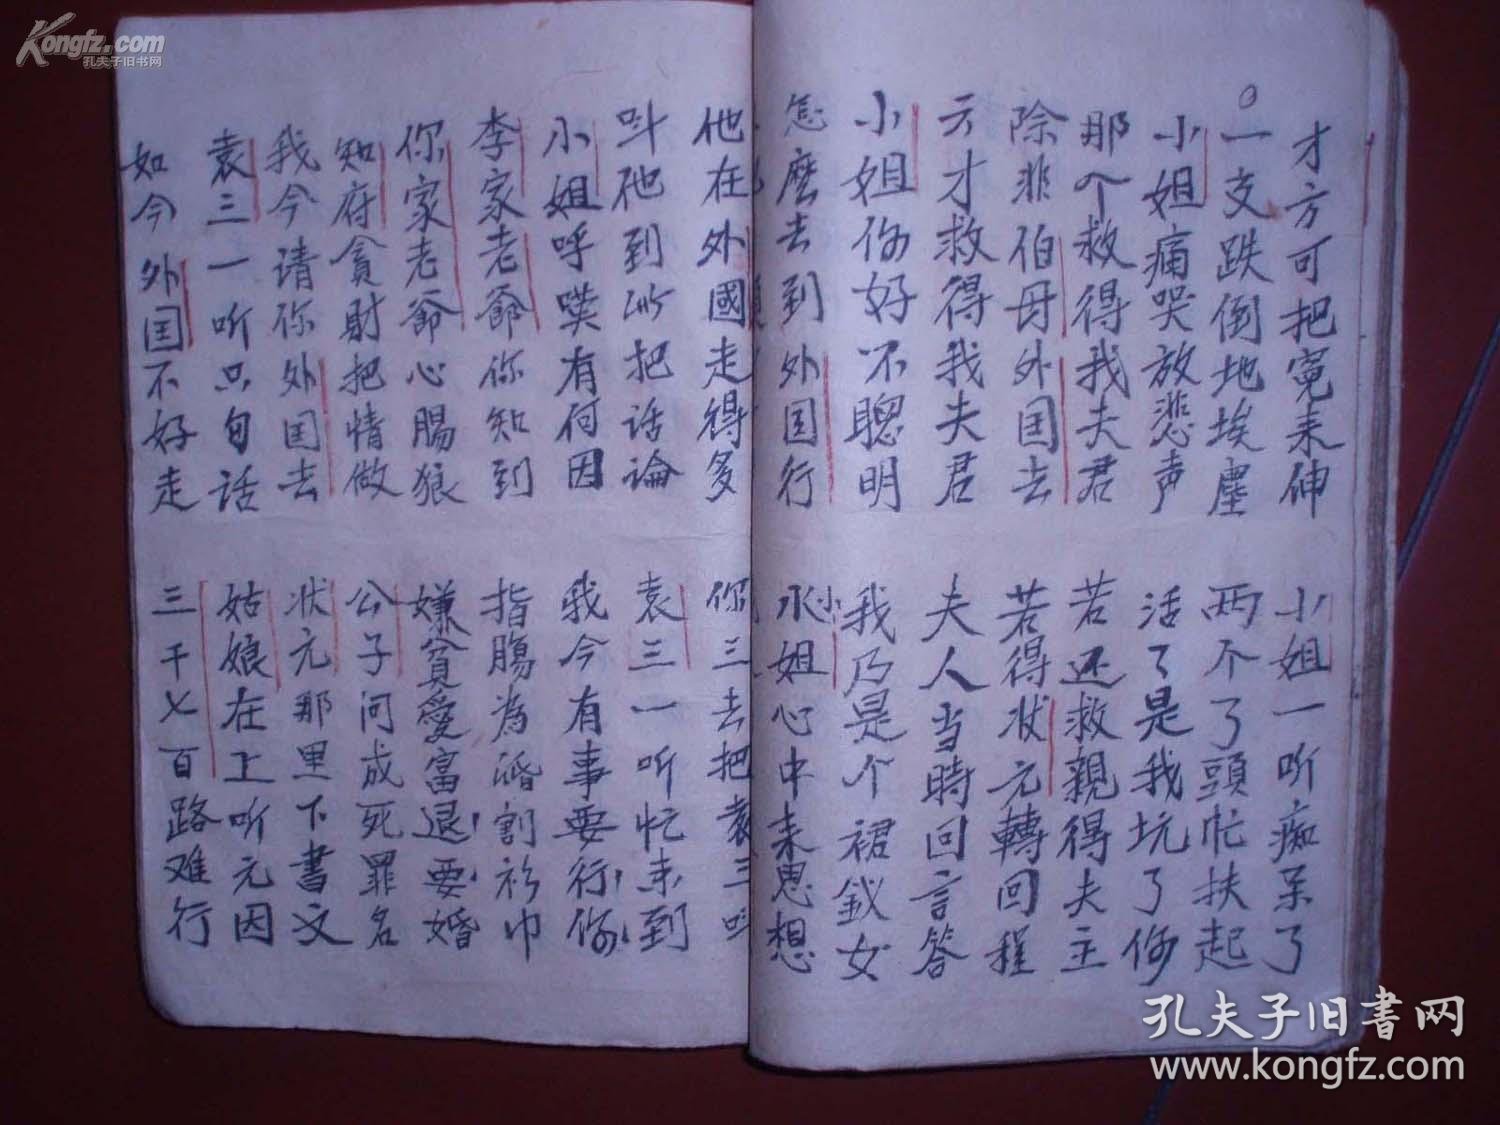 Kongfz.com
孔夫子旧书网
才方可把冤来伸
小姐一听痴呆了
一支跌倒地埃塵
两个了頭忙扶起
小姐痛哭放悲声
活了是我坑了你
那个救得我夫君
若还救親得夫主
除非伯母外国去
若得状元轉回程
云才救得我夫君
夫人当時回言答
小姐你好不聰明
我乃是个裙釵女
怎麽去到外国行
小姐心中来思想
他在外國走得多
你三去把袁三叫
叫他到此把话論
袁三一听忙来到
小姐呼喚有何因
我今有事要行你
李家老爺你知到
指腸為婚割衫巾
你家老爺心腸狼
嫌貧愛富退要婚
知府貪財把情做
公子问成死罪名
我今请你外国去
状元那里下書文
袁三一听只句话
姑娘在上听元因
如今外国不好走
三千七百路难行
孔夫子旧書网
www.kongfz.com